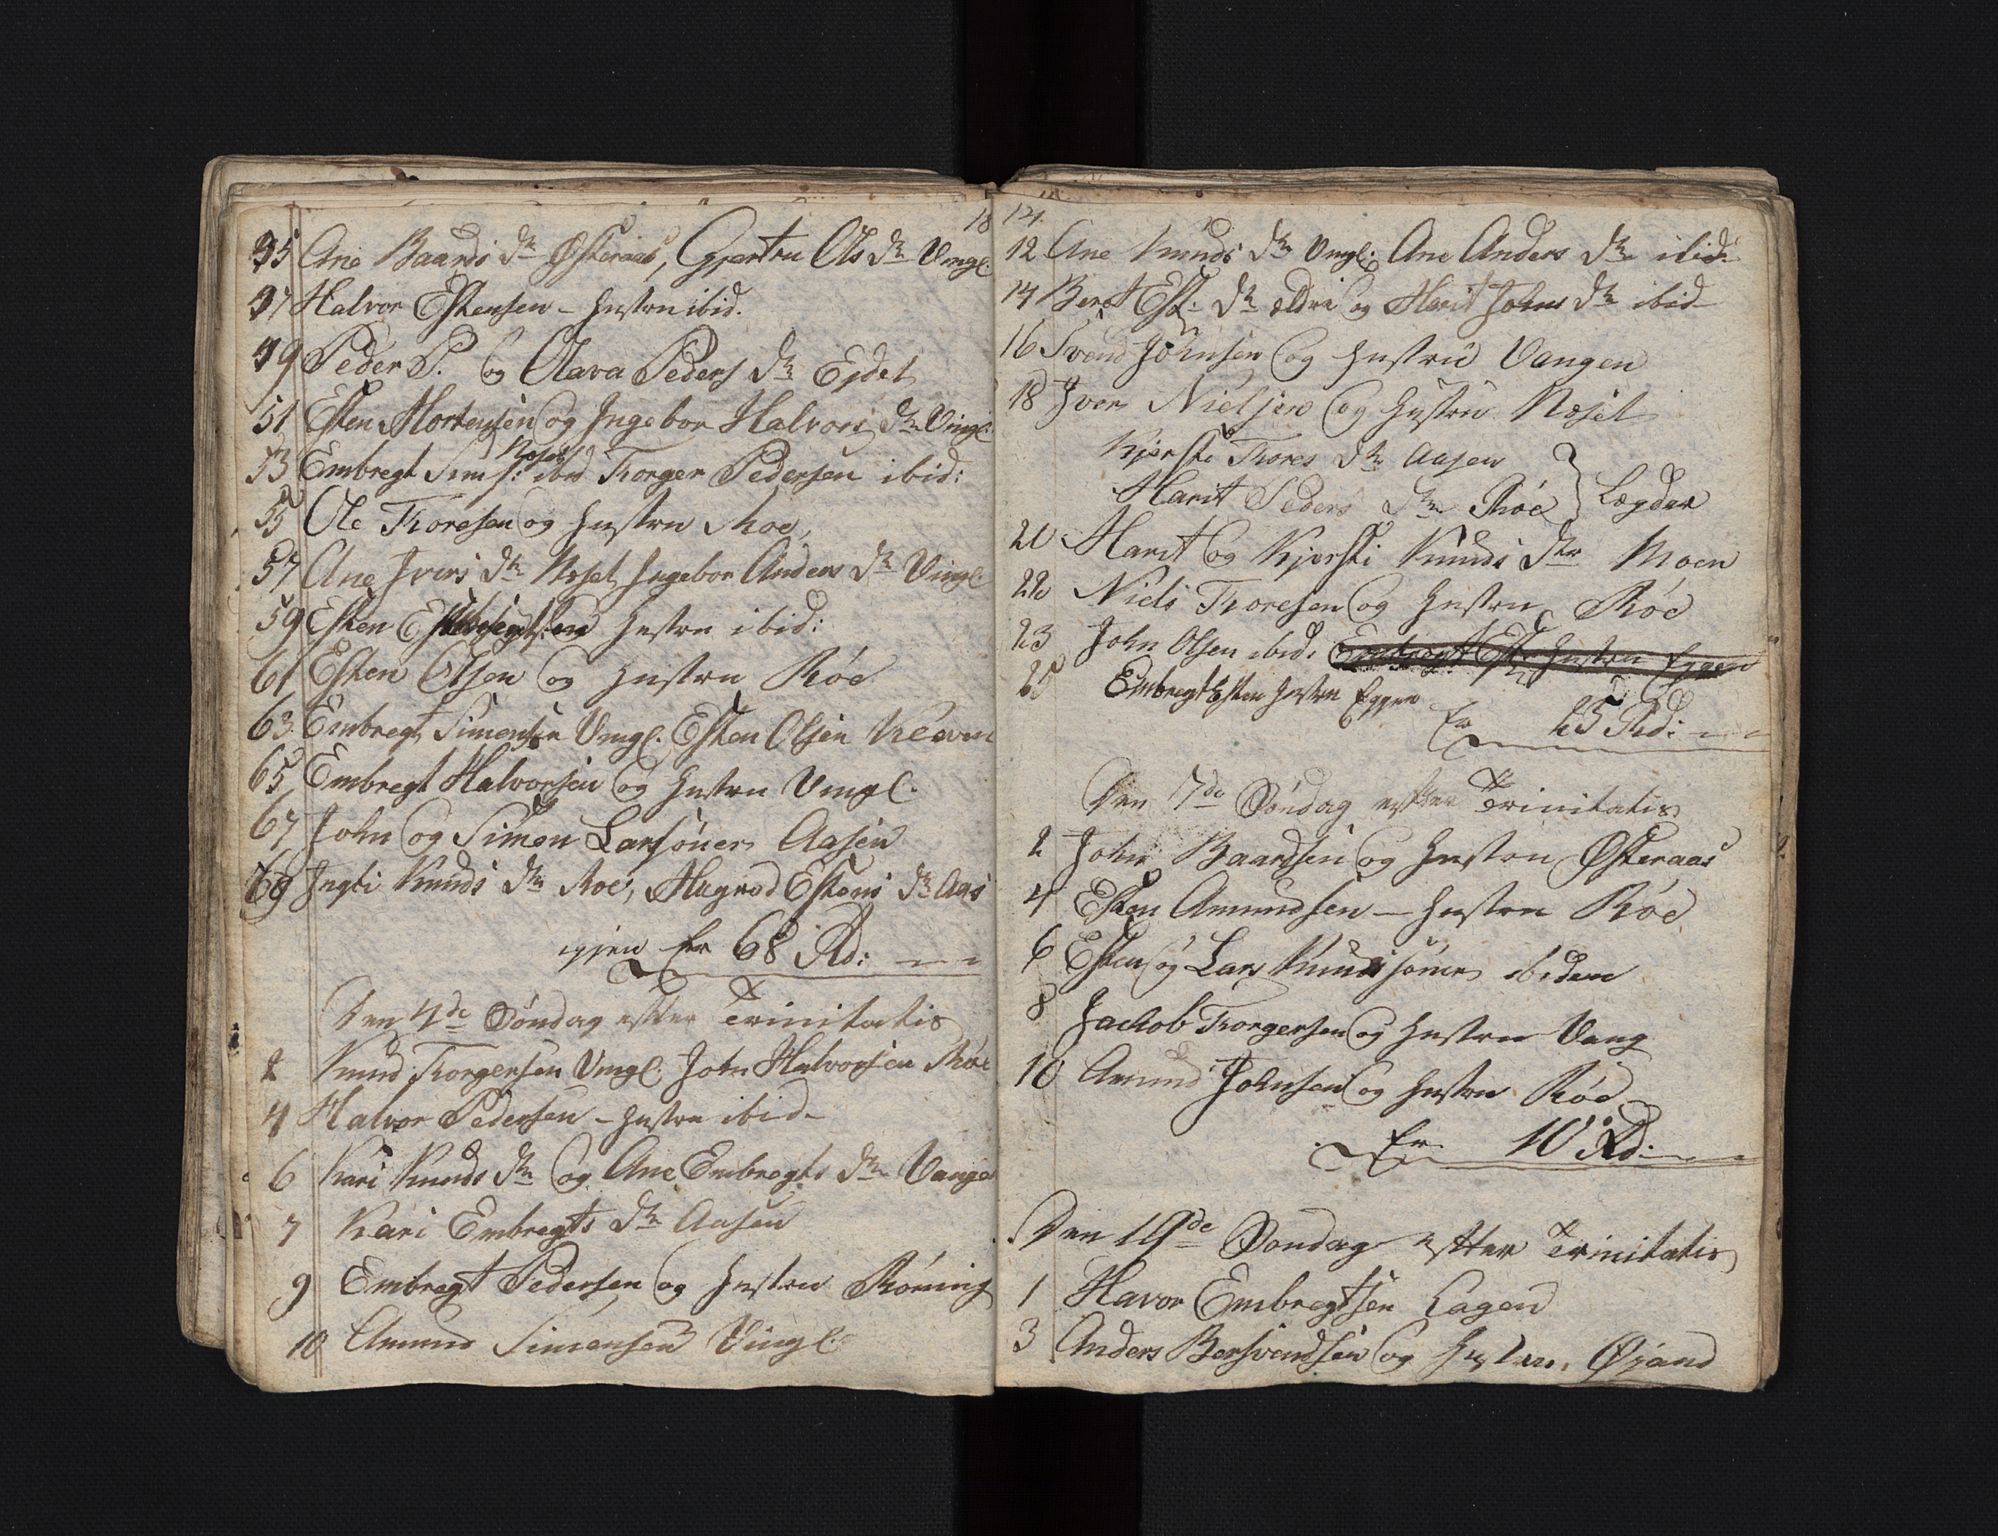 18
35 Ane Baards dr Østeraas, Gjertru Ols dr Vingl.
37 Halvor Estensen – Hustru ibid.
49 Peder P. og Olava Peders dr Eidet
51 Esten Mortensen og Ingebor Halvors dr Vingl.
Noset
53 Embregt Sim s: ibid Torger Pedersen ibid:
55 Ole Toresen og Hustru Roe,
57 Ane Ivers dr Noset Ingebor Anders dr Vingl.
59 Esten Hustru ibid:
61 Esten Olsen og Hustru Röe
63 Embregt Simensen Vingl. Esten Olsen
65 Embregt Halvorsen og Hustru Vingl.
67 John og Simon Larsöner Aasen
68 Ingri Knuds dr Roe, Estens dr Aas
gjen Er 68 Rd:
Den 4de Söndag efter Trinitatis
2 Knud Torgersen Vingl. John Halvorsen Roe
4 Halvor Pedersen – Hustru ibid –
6 Kari Knuds dr og Ane Embregts dr Vange
7 Kari Embregts dr Aasen
9 Embregt Pedersen og Hustru Röning
10 Amund Simensen Vingl.
12 Ane Knuds dr Vingl. Ane Anders dr ibid:
14 Beret Est. dr ældre og Marit Johns dr ibid
16 Svend Johnsen og Hustru Vangen
18 Iver Nielsen og Hustru Noset
Kjersti Tores dr Aasen
Marit Peders dr Röe } Lægder
20 Marit og Kjersti Knuds dr Moen
22 Niels Toresen og Hustru Röe
23 John Olsen ibid: Embregt Est. Hustru Eggen
25 Embregt Esten Hustru Eggen
Er 25 Rd:
Den 7de Söndag efter Trinitatis
2 John Baardsen og Hustru Østeraas
4 Esten Amundsen – Hustru Röe
6 Esten og Lars Knudsöner ibidem
8 Jachob Torgersen og Hustru Vang
10 Amund Johnsen og Hustru Röe
Er 10 Rd:
Den 19de Söndag efter Trinitatis
1 Havor Embregtsen Lagen
3 Anders Bersvendsen og Hustru Öiand